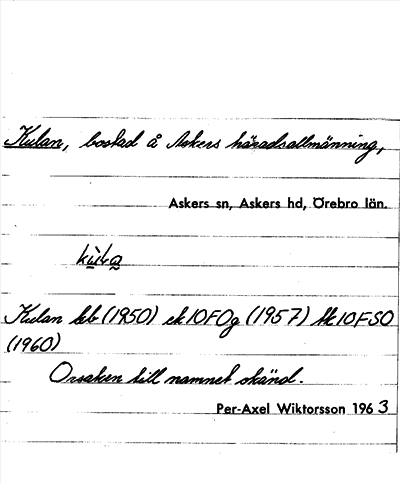 Kulan, bostad å Askers häradsallmänning,
Askers sn, Askers hd, Örebro län.
Kulan (1950) ek10F0g (1957) 10F50
(1960)
Orsaken till namnet okänd.
Per-Axel Wiktorsson 1963